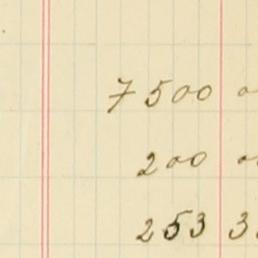 7500 0
200 0
253 3